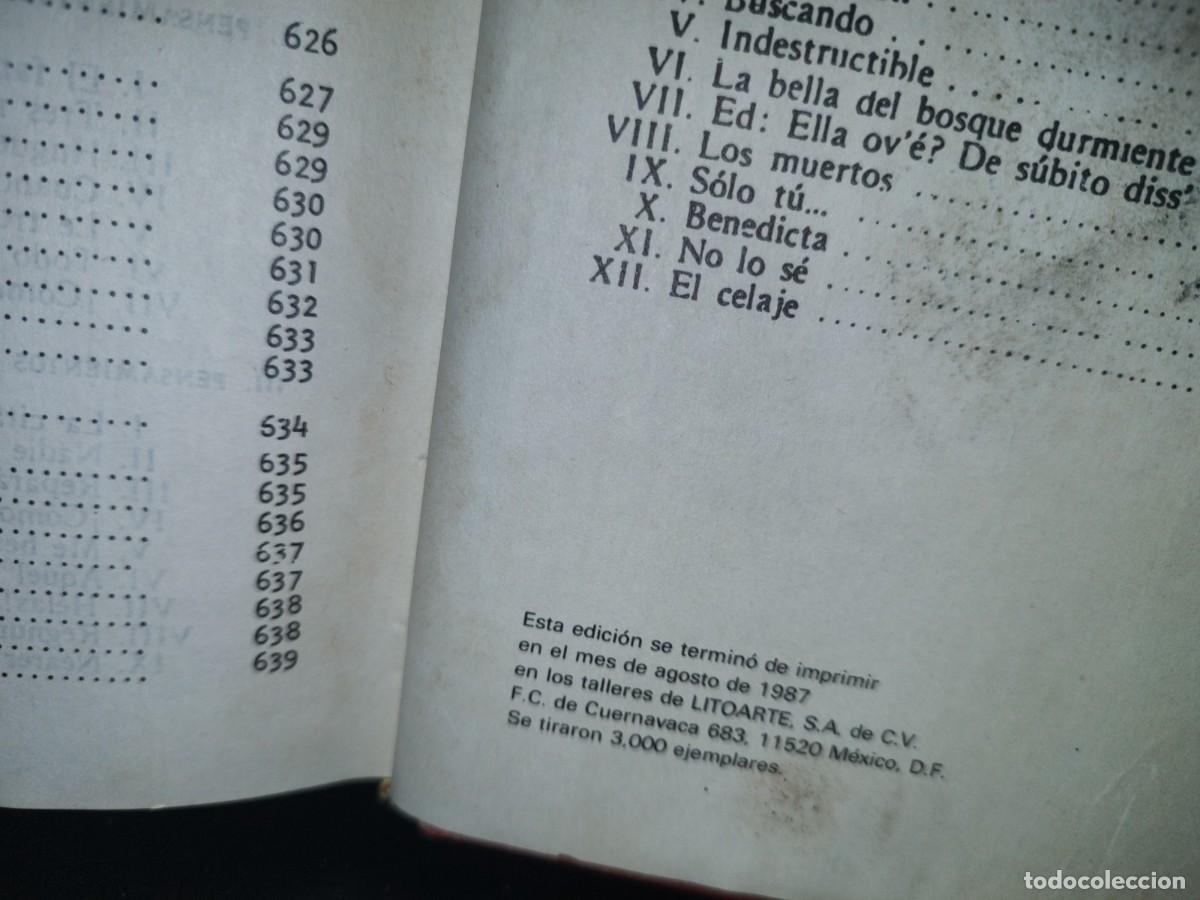 626
627
629
629
630
630
631
632
633
633
634
635
635
636
637
637
638
638
639
Buscando
V. Indestructible
VI. La bella del bosque durmiente
VII. Ed: Ella ov'é? De súbito diss'
VIII. Los muertos
IX. Sólo tú...
X. Benedicta
XI. No lo sé
XII. El celaje
Esta edición se terminó de imprimir
en el mes de agosto de 1987
en los talleres de LITOARTE, S.A. de C.V.
F.C. de Cuernavaca 683, 11520 México, D.F.
Se tiraron 3,000 ejemplares.
todocoleccion